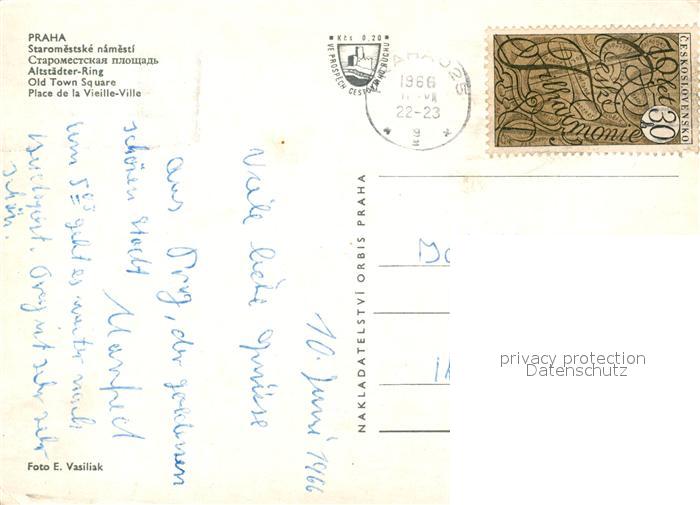 PRAHA
Staroměstské náměstí
Староместская площадь
Altstädter-Ring
Old Town Square
Place de la Vieille-Ville
Kčs 0,20
VE PROSPĚCH CESTOVNÍHO RUCHU
PRAHA 025
1966
22-23
10 let
České
Filharmonie
30
ČESKOSLOVENSKO
10. Juni 1966
Viele liebe Grüsse
aus Prag, der goldenen
schönen Stadt
Manfred
um 5 geht es weiter nach
Budapest. Prag ist sehr sehr
schön.
NAKLADATELSTVÍ ORBIS PRAHA
privacy protection
Datenschutz
Foto E. Vasiliak